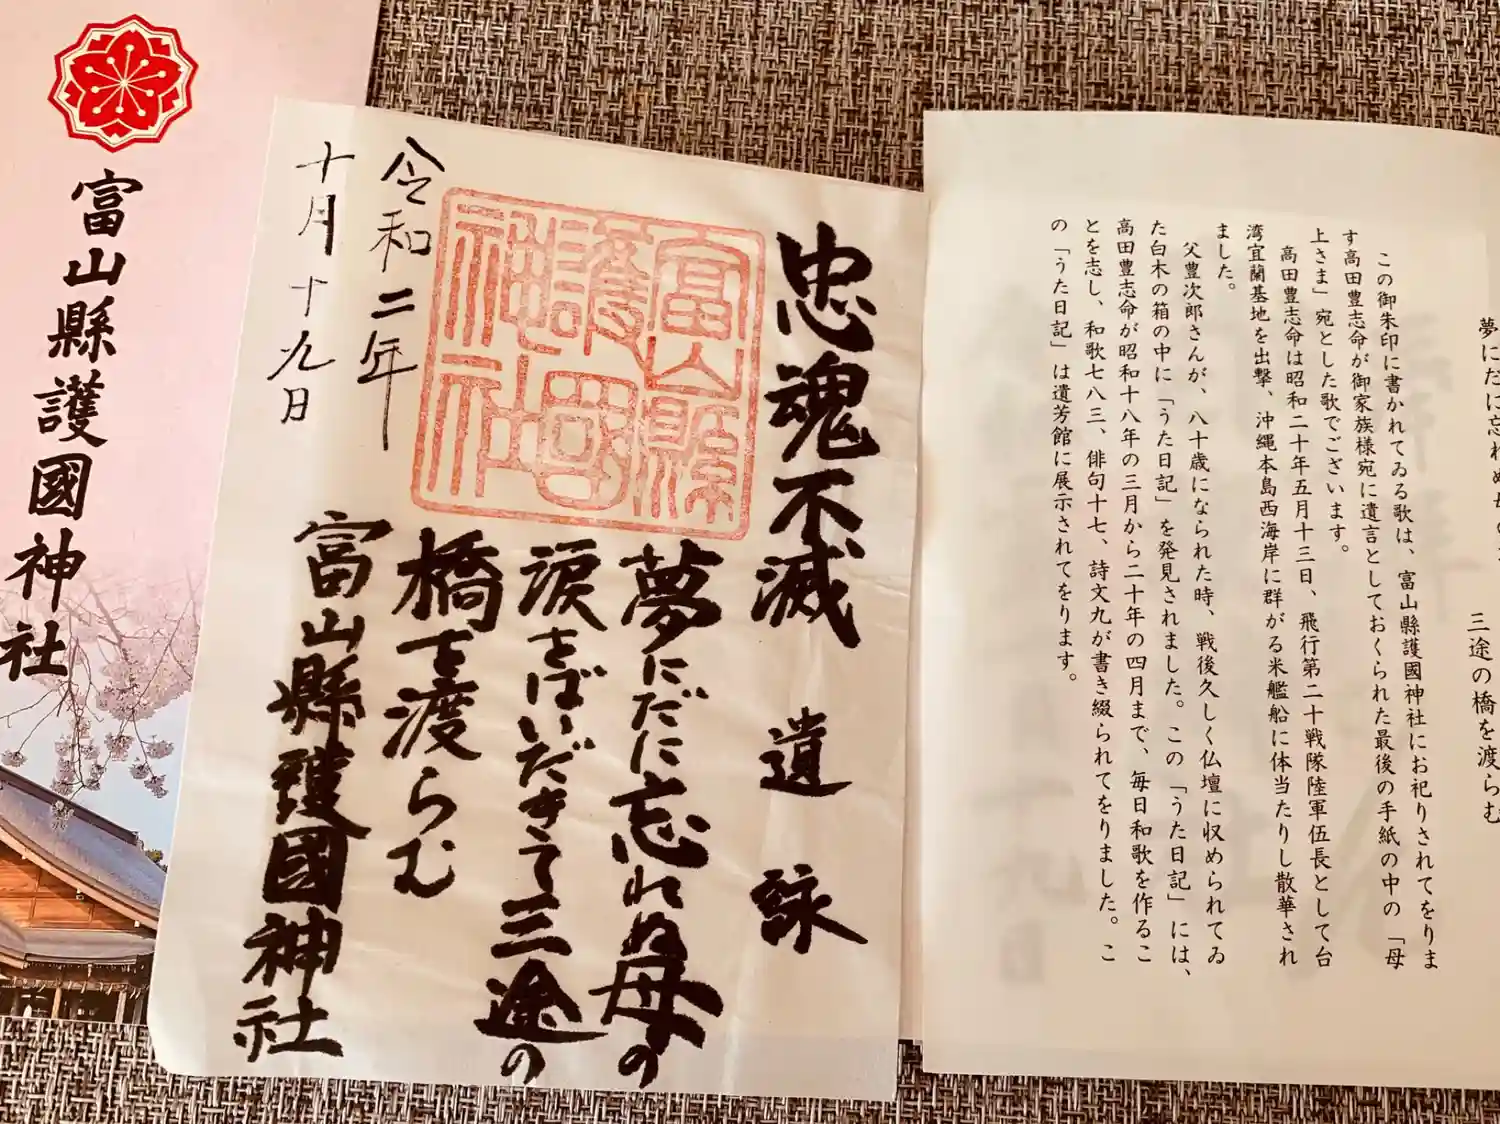 夢にだに忘れぬ母の
三途の橋を渡らむ
この御朱印に書かれてゐる歌は、富山縣護國神社にお祀りされてをりま
す高田豊志命が御家族様宛に遺言としておくられた最後の手紙の中の「母
上さま」宛とした歌でございます。
高田豊志命は昭和二十年五月十三日、飛行第二十戦隊陸軍伍長として台
湾宜蘭基地を出撃、沖縄本島西海岸に群がる米艦船に体当たりし散華され
ました。
父豊次郎さんが、八十歳になられた時、戦後久しく仏壇に収められてゐ
た白木の箱の中に「うた日記」を発見されました。この「うた日記」には、
高田豊志命が昭和十八年の三月から二十年の四月まで、毎日和歌を作るこ
とを志し、和歌七八三、俳句十七、詩文九が書き綴られてをりました。こ
の「うた日記」は遺芳館に展示されてをります。
忠魂不滅 遺詠
夢にだに忘れぬ母の
涙をばいだきて三途の
橋を渡らむ
富山縣護國神社
富山縣
護國
神社
令和二年
十月十九日
富山縣護國神社